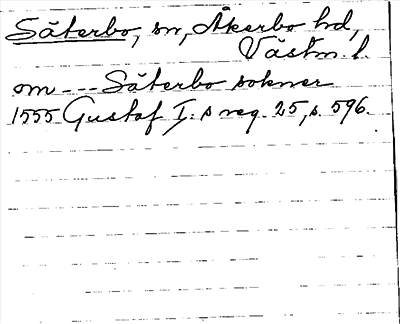 Säterbo, sn, Åkerbo hd,
Västm. l.
om --- Säterbo sokner
1555 Gustaf I:s reg. 25, s. 596.